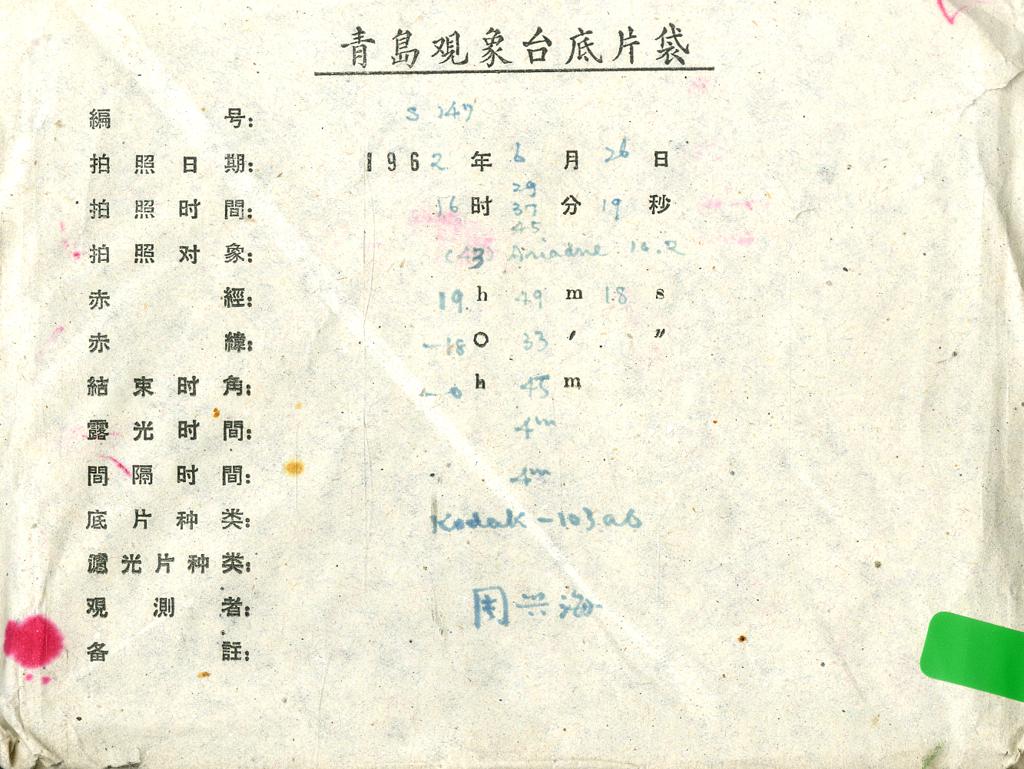 青島观象台底片袋
編号: S 147
拍照日期: 1962年6月26日
29
拍照时間: 16时37分19秒
45
拍照对象: (43) Ariadne 10.2
赤經: 19h 49m 18s
赤緯: -18° 33′ ″
結束时角: -0h 45m
露光时間: 4m
間隔时間: 4m
底片种类: Kodak-103a0
濾光片种类:
观測者: 周兴海
备註: